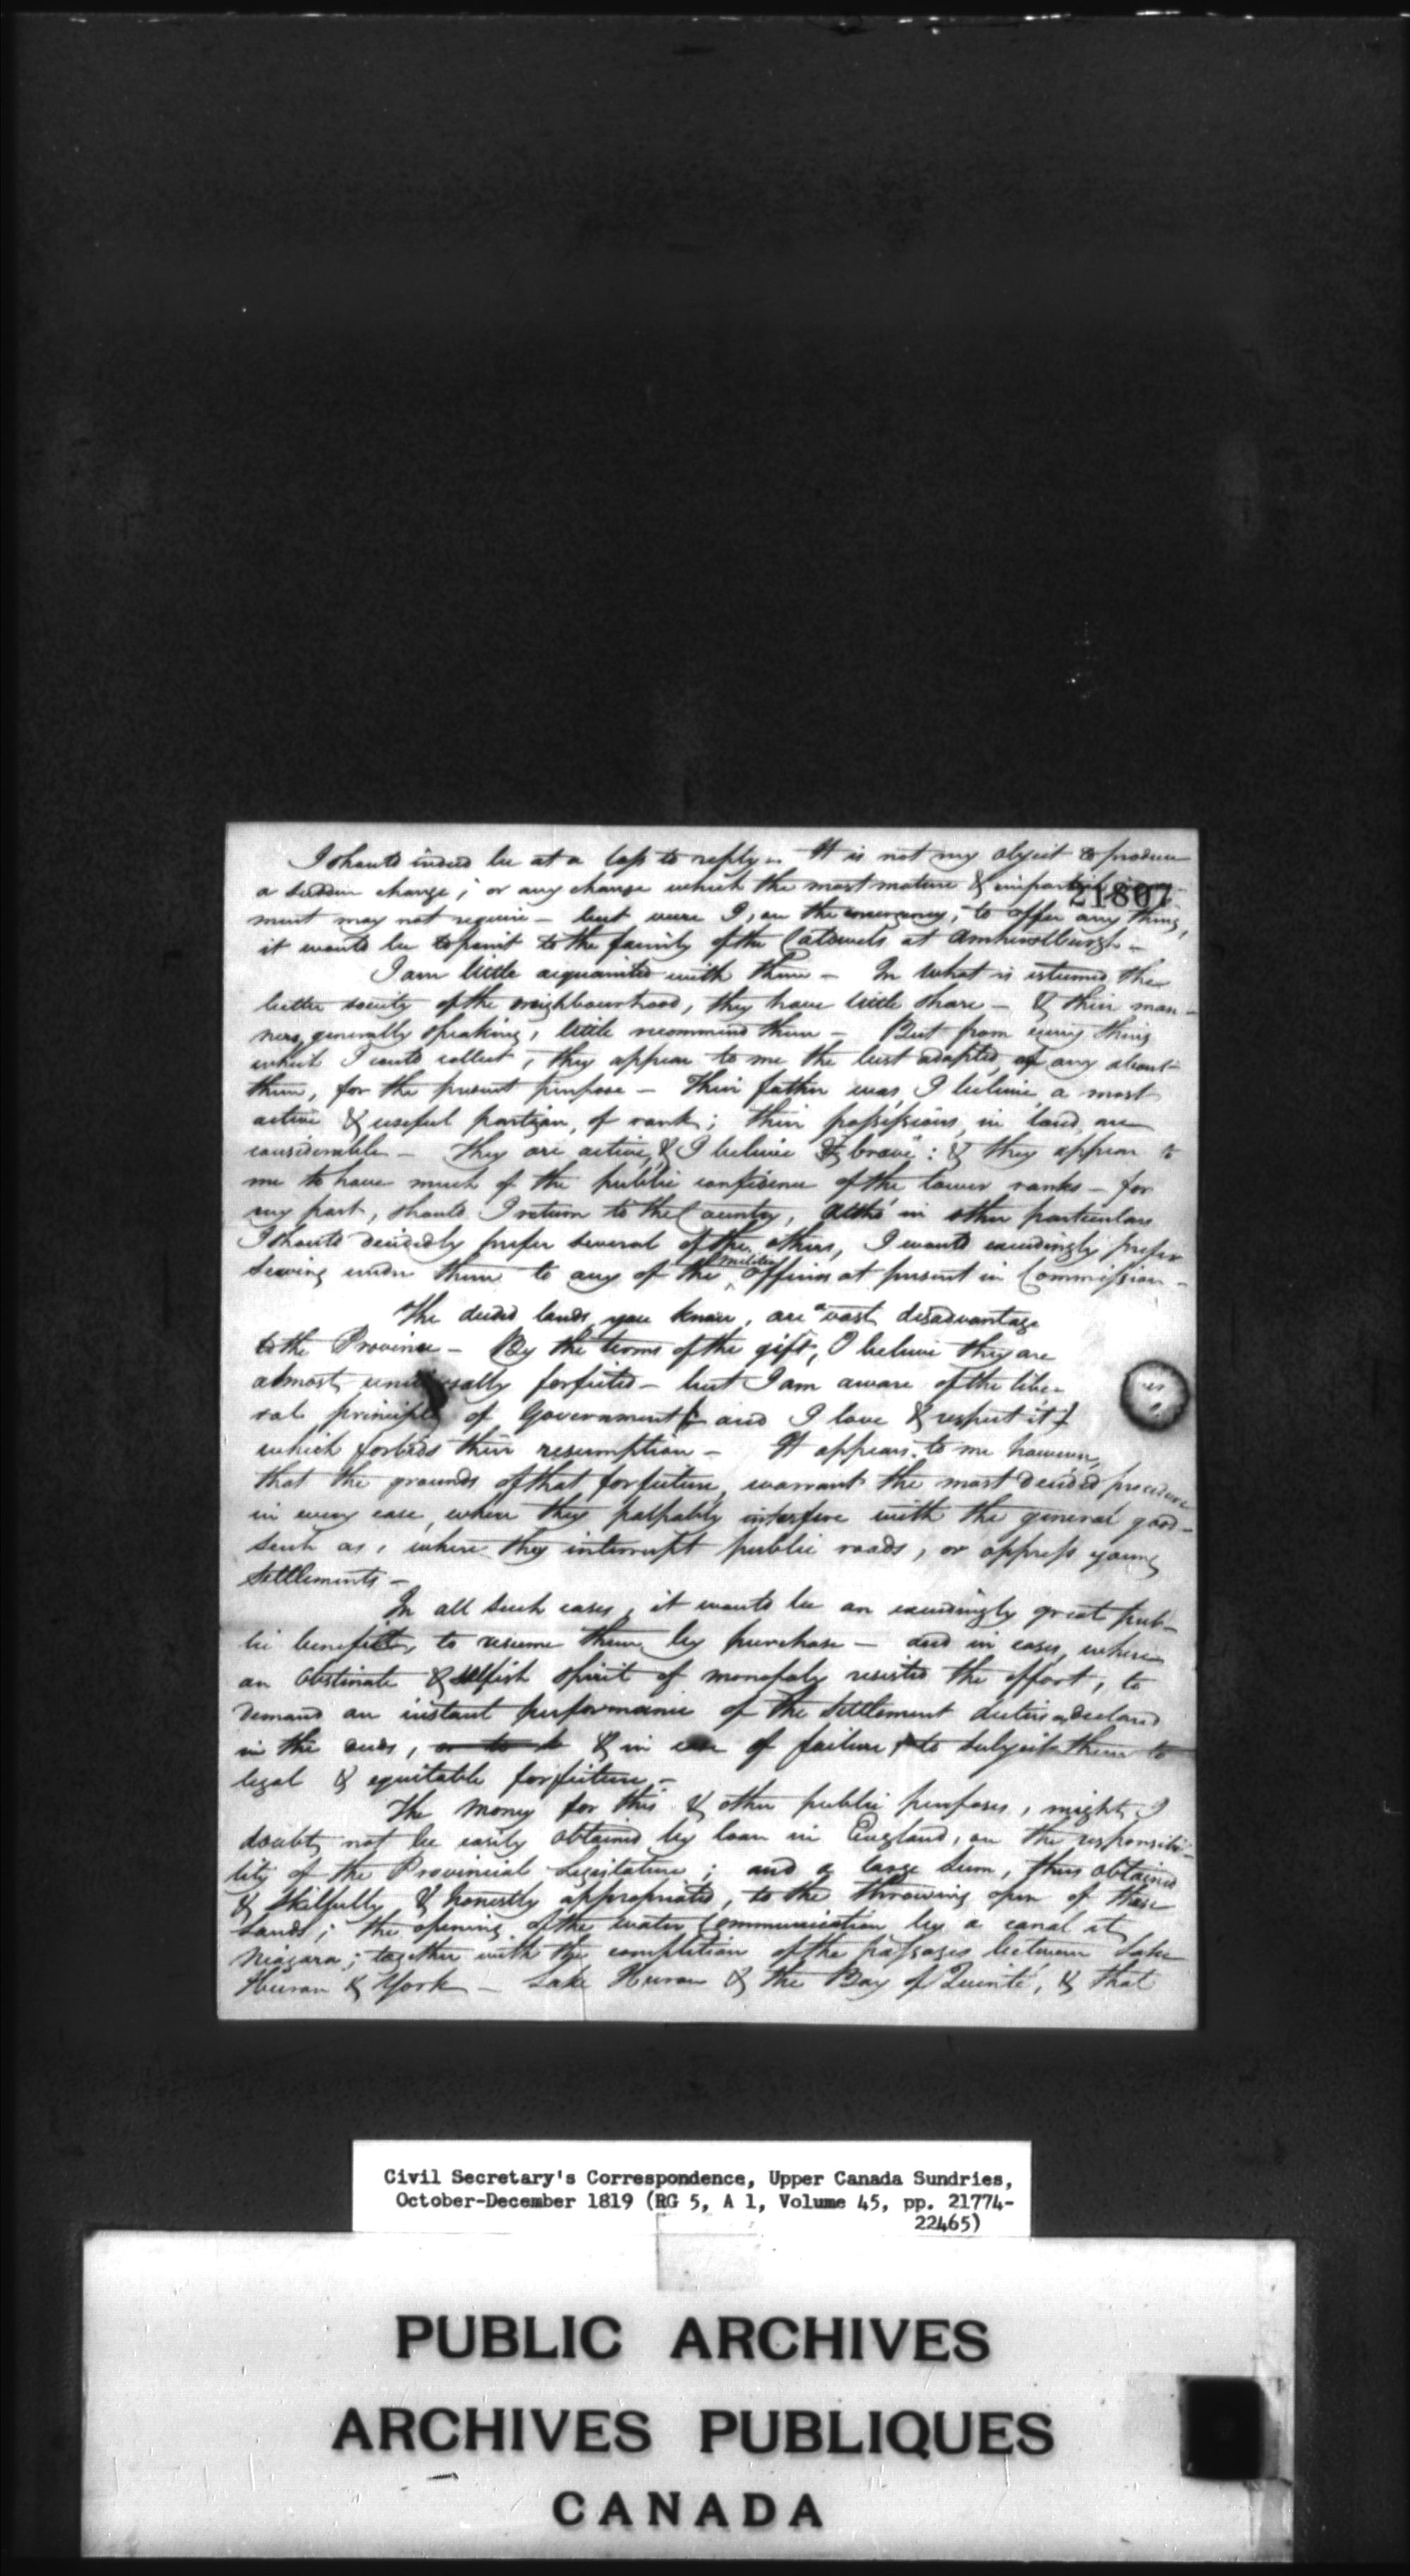 I should indeed be at a loss to reply. It is not my object to produce
21807
a sudden change; or any change which the most mature & impartial
ment may not require — but were I, on the emergency, to offer any thing,
it would be to point to the family of the Caldwels at Amherstburgh —
I am little acquainted with them — In what is esteemed the
better society of the neighbourhood, they have little share — & their man-
ners, generally speaking, little recommend them — But from every thing
which I could collect, they appear to me the best adapted, of any about
them, for the present purpose — Their father was, I believe, a most
active & useful partizan, of rank; their possessions, in land, are
considerable — They are active, & I believe brave: & they appear to
me to have much of the public confidence of the lower ranks — for
my part, should I return to the Country, altho' in other particulars
I should decidedly prefer several of the others, I would exceedingly prefer
serving under them to any of the militia officers at present in Commission —
The deeded lands, you know, are a vast disadvantage
to the Province — By the terms of the gift, I believe they are
almost universally forfeited — but I am aware of the libe-
ral principle of Government (and I love & respect it)
which forbids their resumption — It appears to me however,
that the grounds of that forfeiture, warrant the most decided procedure
in every case, where they palpably interfere with the general good —
such as, where they interrupt public roads, or oppress young
settlements —
In all such cases, it would be an exceedingly great pub-
lic benefit, to resume them by purchase — and in cases, where
an obstinate & selfish spirit of monopoly resisted the effort, to
demand an instant performance of the settlement duties declared
in the deeds, or to & in case of failure, to subject them to
legal & equitable forfeiture —
The money for this & other public purposes, might I
doubt not be easily obtained by loan in England, on the responsibi-
lity of the Provincial Legislature; and a large sum, thus obtained
& skilfully & honestly appropriated, to the throwing open of these
lands; the opening of the water Communication by a canal at
Niagara; together with the completion of the passages between Lake
Huron & York — Lake Huron & the Bay of Quinté, & that
Civil Secretary's Correspondence, Upper Canada Sundries,
October-December 1819 (RG 5, A 1, Volume 45, pp. 21774-
22465)
PUBLIC ARCHIVES
ARCHIVES PUBLIQUES
CANADA